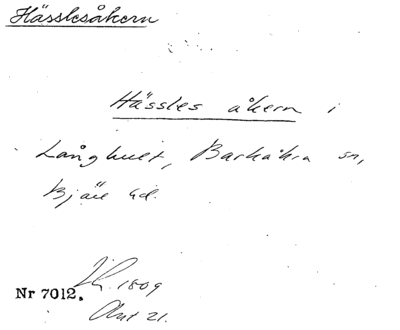 Hässlesåkern
Hässles åkern i
Långhult, Barkåkra sn,
Bjäre hd.
1809
Nr 7012.
Akt 21.